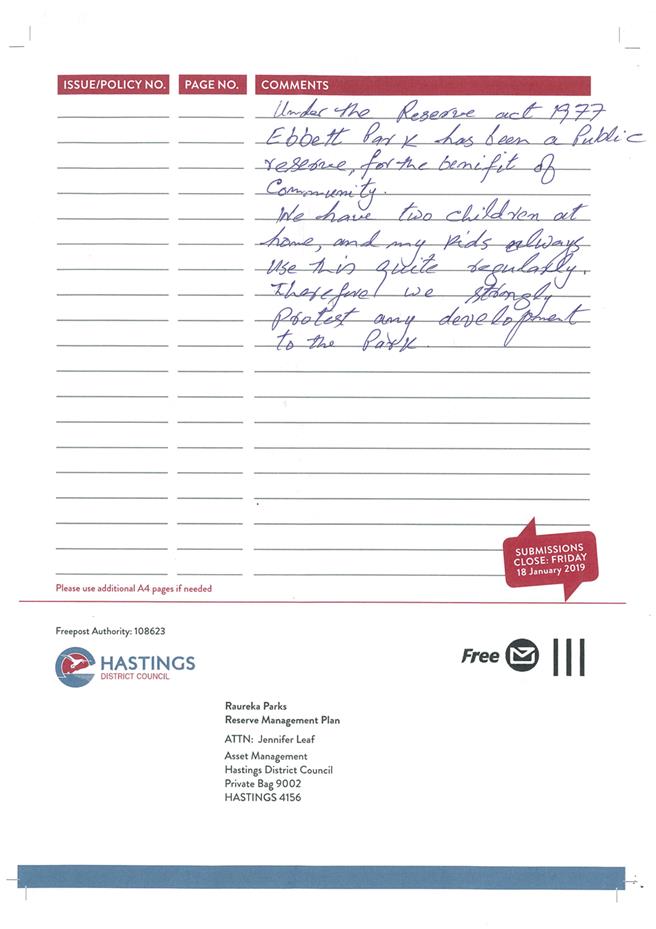 ISSUE/POLICY NO. PAGE NO. COMMENTS
Under the Reserve act 1977
Ebbett Park has been a Public
reserve, for the benifit of
Community.
We have two children at
home, and my kids always
Use this quite regularly.
Therefore we strongly
Protest any development
to the Park.
SUBMISSIONS
CLOSE: FRIDAY
18 January 2019
Please use additional A4 pages if needed
Freepost Authority: 108623
HASTINGS
DISTRICT COUNCIL
Free
Raureka Parks
Reserve Management Plan
ATTN: Jennifer Leaf
Asset Management
Hastings District Council
Private Bag 9002
HASTINGS 4156